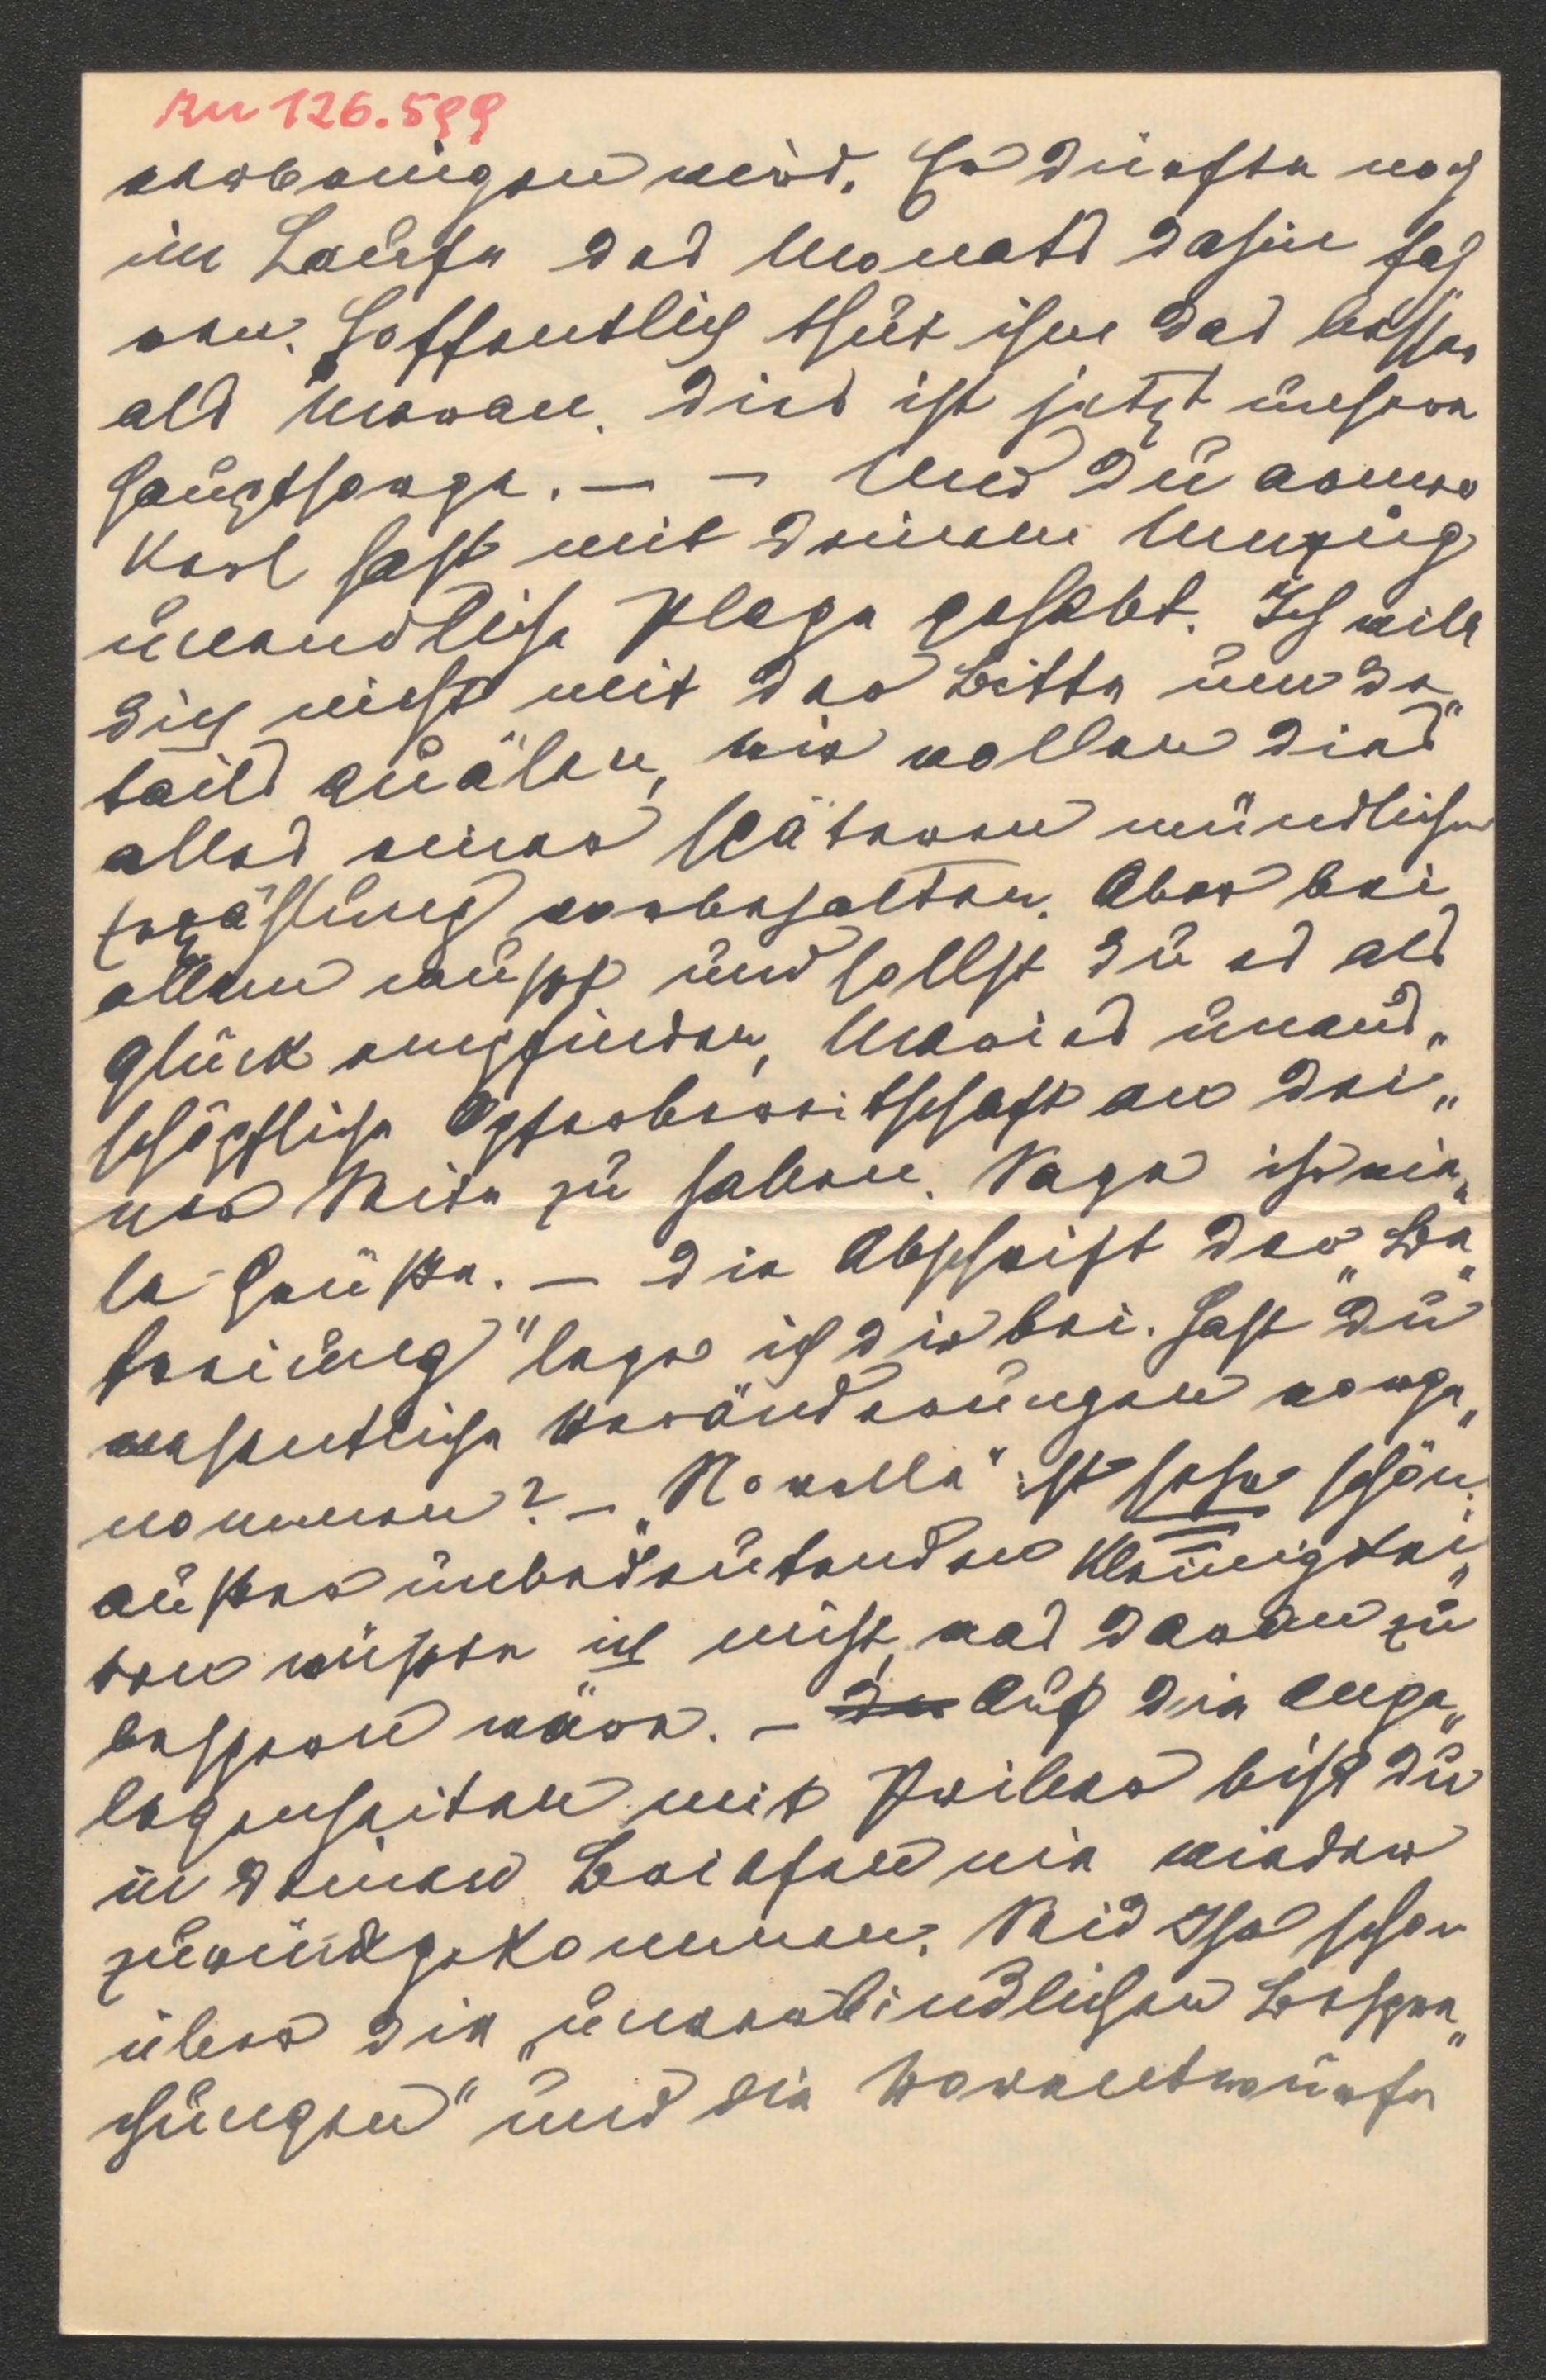 zu 126.599
verbringen wird. Er dürfte noch
im Laufe des Monats dahin fah„
ren. Hoffentlich thut ihm das besser
als Meran. Dies ist jetzt unsere
Hauptsorge. — — Und Du armer
Karl hast mit Deinem Umzug
unendliche Plage gehabt. Ich will
Dich nicht mit der Bitte um De„
tails quälen, wir wollen dies
alles einer späteren mündlichen
Erzählung vorbehalten. Aber bei
allem mußt und sollst Du es als
Glück empfinden, Maries unaus„
schöpfliche Opferbereitschaft an Dei„
ner Seite zu haben. Sage ihr vie„
le Grüße. — Die Abschrift der „Be„
freiung" lege ich Dir bei. Hast Du
wesentliche Veränderungen vorge„
nommen? — „Novelle" ist sehr schön.
außer unbedeutenden Kleinigkei„
ten wüßte ich nicht, was daran zu
bessern wäre. — Du Auf die Ange„
legenheiten mit Priber bist Du
in Deinen Briefen nie wieder
zurückgekommen. Seid Ihr schon
über die „unverbindlichen Bespre„
chungen" und die Vorentwürfe